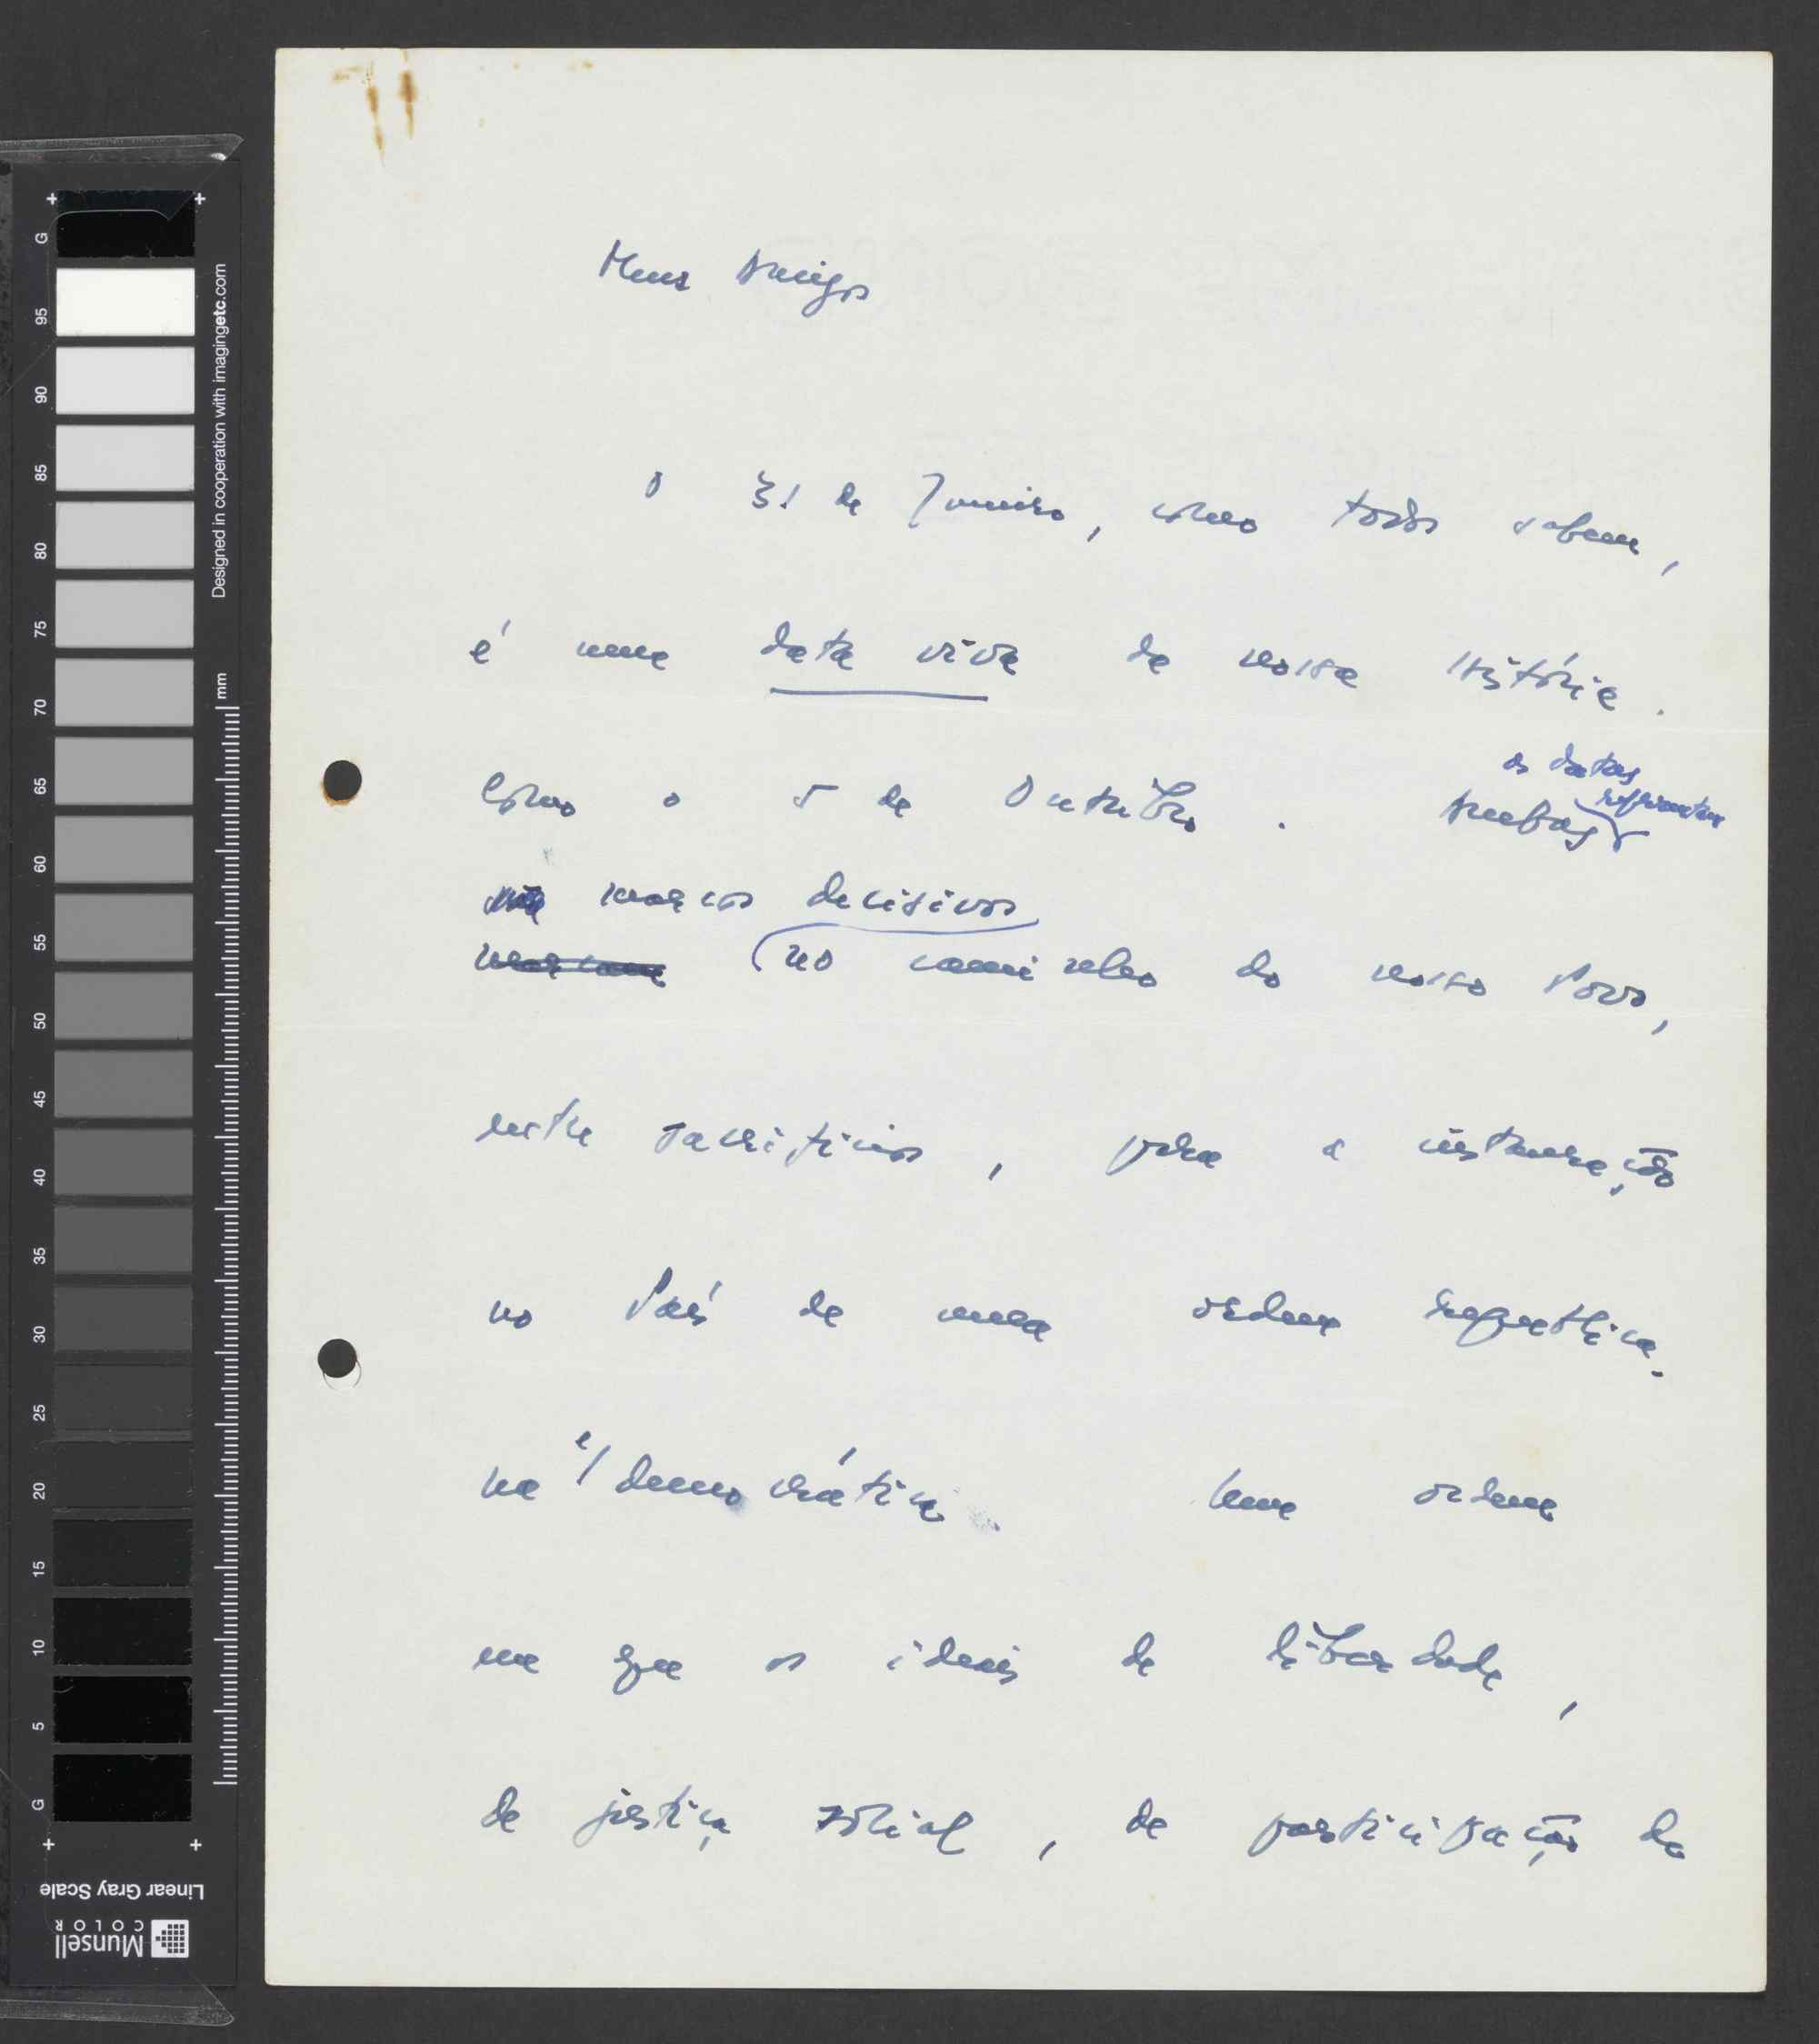 Meus Amigos
O 31 de Janeiro, como todos sabem,
é uma data viva da nossa História.
Como o 5 de Outubro. Ambas
as datas
representam
marcos decisivos
marcam no caminho do nosso Povo,
sacrifícios, para a instauração
no País de uma ordem republica-
na e/ democrática. Uma ordem
em que os ideais de liberdade,
de justiça social, de participação de
G
95
90
85
80
75
70
65
60
55
50
45
40
35
30
25
20
15
10
5
G
Designed in cooperation with imagingetc.com
mm
Linear Gray Scale
Munsell
COLOR